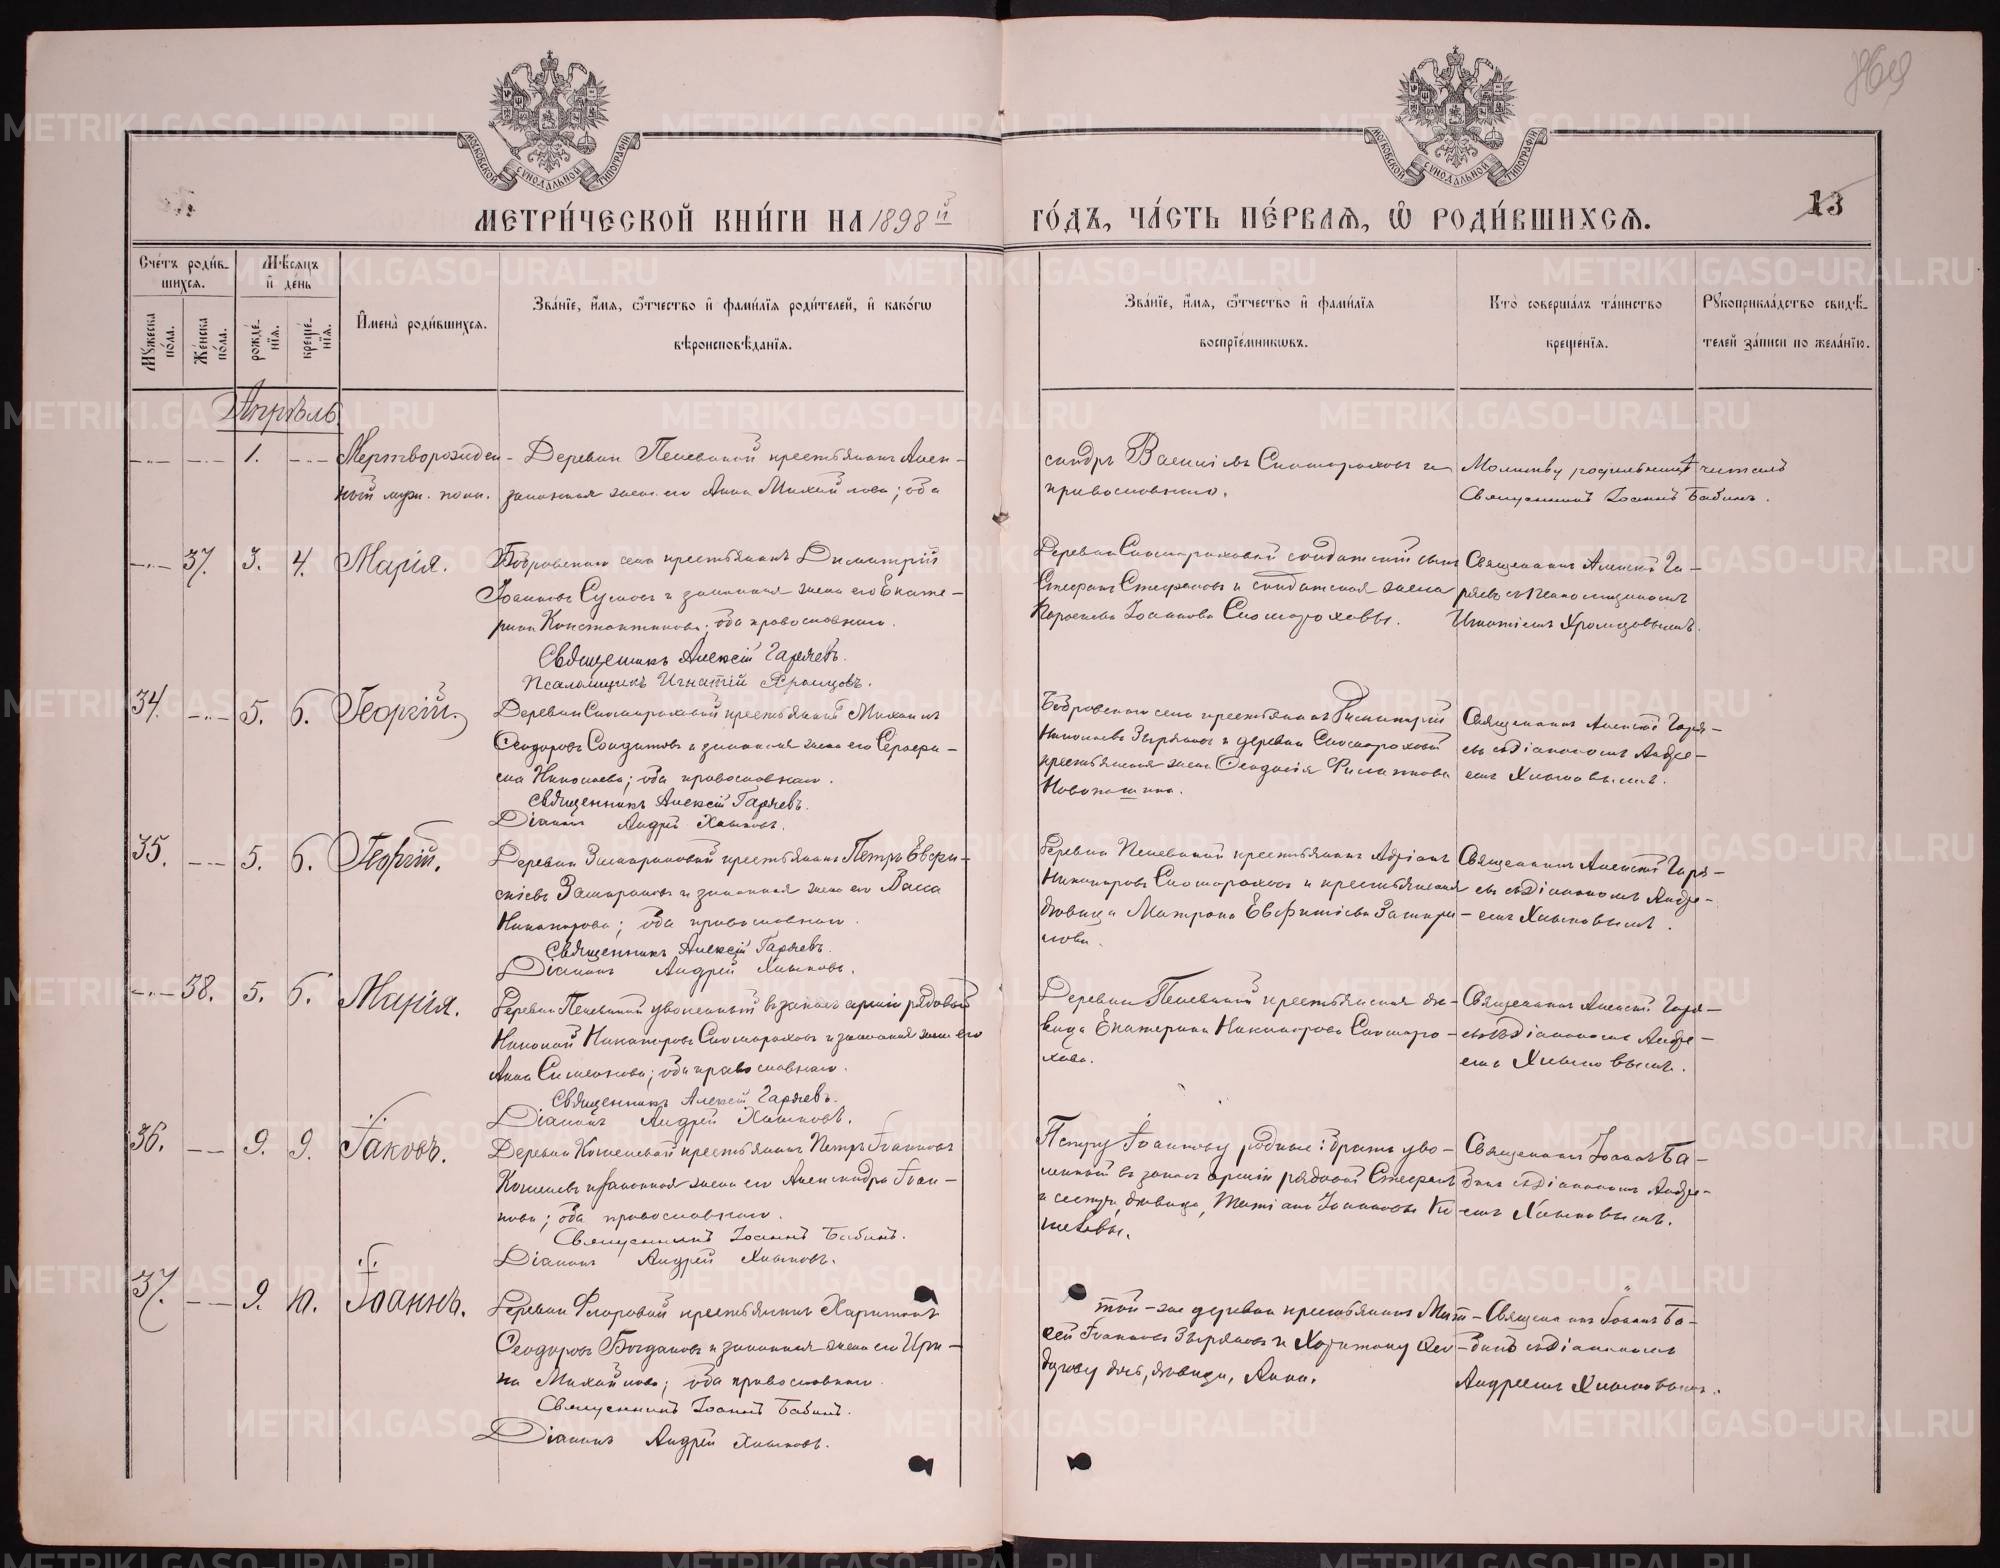 МОСКОВСКОЙ СѴНОДАЛЬНОЙ ТИПОГРАФІИ
МОСКОВСКОЙ СѴНОДАЛЬНОЙ ТИПОГРАФІИ
13
МЕТРИ́ЧЕСКОЙ КНИ́ГИ НА 1898й
ГО́ДЪ, ЧА́СТЬ ПЕ́РВАѦ, Ѡ҆ РОДИ́ВШИХСѦ.
Сче́тъ роди́в-
шихсѧ.
Мꙋжеска по́ла.
Же́нска по́ла.
Мѣ́сѧцъ
и҆ де́нь
рожде́нїѧ.
креще́нїѧ.
И҆мена̀ роди́вшихсѧ.
Зва́нїе, и҆́мѧ, ѻ҆́тчество и҆ фами́лїѧ роди́телей, и҆ како́гѡ
вѣроисповѣ́данїѧ.
Зва́нїе, и҆́мѧ, ѻ҆́тчество и҆ фами́лїѧ
воспрїе́мникѡвъ.
Кто̀ соверша́лъ та́инство
креще́нїѧ.
Рꙋкоприкла́дство свидѣ́-
телей за́писи по жела́нїю.
Апрѣль
1.
Мертворожден-
ный муж. пола.
Деревни Пеневиной крестьянинъ Алек-
законная жена его Анна Михайлова; оба
сандръ Василіевъ Скоморохов и
православнаго.
Молитву родильницѣ читалъ
Священникъ Іоаннъ Бабинъ.
37. 3. 4. Марія.
Бобровскаго села крестьянинъ Димитрій
Іоанновъ Сусловъ и законная жена его Екате-
рина Константинова; оба православнаго.
Священникъ Алексій Гаряевъ.
Псаломщикъ Игнатій Хромцовъ.
Деревни Скомороховой солдатскій сынъ
Стефанъ Стефановъ и солдатская жена
Іоаннова Скомороховы.
Священникъ Алексій Га-
ряевъ съ псаломщикомъ
Игнатіемъ Хромцовымъ.
34. 5. 6. Георгій.
Деревни Скомороховой крестьянинъ Михаилъ
Ѳеодоровъ Солдатовъ и законная жена его Серафи-
ма Николаева; оба православнаго.
Священникъ Алексій Гаряевъ.
Діаконъ Андрей Хлыновъ.
Бобровскаго села крестьянинъ Димитрій
Николаевъ Зыряновъ и деревни Скомороховой
крестьянская жена Ѳеодосія Филиппова
Новопашина.
Священникъ Алексій Гаря-
евъ съ Діакономъ Андре-
емъ Хлыновымъ.
35. 5. 6. Георгій.
Деревни крестьянинъ Петръ Евфи-
міевъ и законная жена его Васса
Никанорова; оба православнаго.
Священникъ Алексій Гаряевъ.
Діаконъ Андрей Хлыновъ.
Деревни Пеневиной крестьянинъ Адріанъ
Никаноровъ Скомороховъ и крестьянская
дѣвица Матрона Евфиміева
Священникъ Алексій Гаря-
евъ съ Діакономъ Андре-
емъ Хлыновымъ.
38. 5. 6. Марія.
Деревни Пеневиной уволенный въ запасъ арміи рядовый
Николай Никаноровъ Скомороховъ и законная жена его
Анна Симеонова; оба православнаго.
Священникъ Алексій Гаряевъ.
Діаконъ Андрей Хлыновъ.
Деревни Пеневиной крестьянская дѣ-
вица Екатерина Никанорова Скоморо-
хова.
Священникъ Алексій Гаря-
евъ съ Діакономъ Андре-
емъ Хлыновымъ.
36. 9. 9. Іаковъ.
Деревни Кошелевой крестьянинъ Петръ Іоанновъ
Кошелевъ и законная жена его Александра Іоан-
нова; оба православнаго.
Священникъ Іоаннъ Бабинъ.
Діаконъ Андрей Хлыновъ.
Петру Іоаннову родные: братъ уво-
ленный въ запасъ арміи рядовой Стефанъ
и сестра, дѣвица, Іоанновы Ко-
шелевы.
Священникъ Іоаннъ Ба-
бинъ съ Діакономъ Андре-
емъ Хлыновымъ.
37. 9. 10. Іоаннъ.
Деревни Флоровой крестьянинъ Харитонъ
Ѳеодоровъ Богдановъ и законная жена его Ири-
на Михайлова; оба православнаго.
Священникъ Іоаннъ Бабинъ.
Діаконъ Андрей Хлыновъ.
той-же деревни крестьянинъ
Іоанновъ Зыряновъ и Харитону Ѳео-
дорову дочь, дѣвица, Анна.
Священникъ Іоаннъ Ба-
бинъ съ Діакономъ
Андреемъ Хлыновымъ.
METRIKI.GASO-URAL.RU